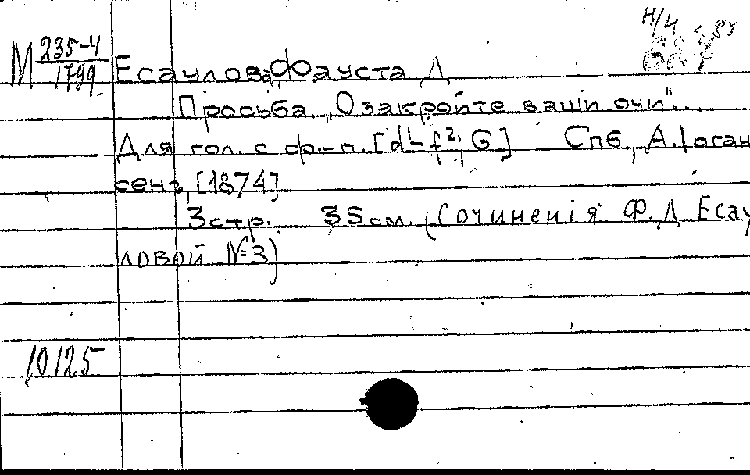 Н/И
М 235-4
1799
Есаулова, Фауста Д
Просьба „О закройте ваши очи"...
Для гол. с ф.-п. [d¹-f²; G] Спб, А. Иоган
сенъ, [1874]
3 стр. 35 см. (Сочиненія Ф. Д Есау
ловой №3)
10125